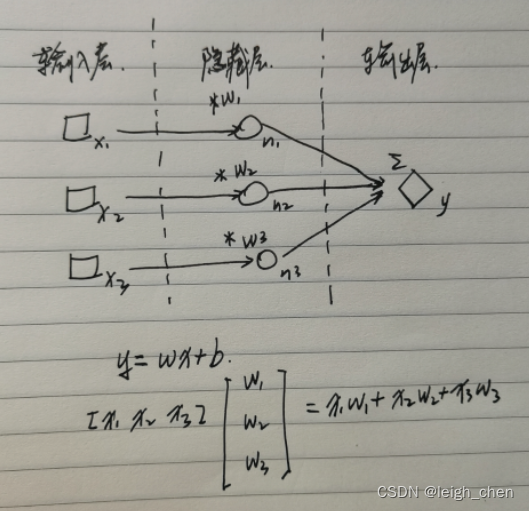 输入层. 隐藏层. 输出层.
*w₁
x₁ n₁
*w₂ Σ
x₂ n₂ y
*w3
x₃ n3
y=wx+b.
[x₁ x₂ x₃] [w₁ w₂ w₃] = x₁w₁+x₂w₂+x3w3
CSDN @leigh_chen